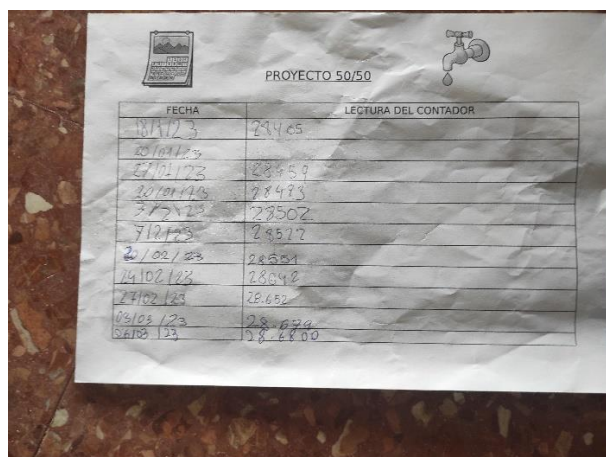 PROYECTO 50/50
FECHA LECTURA DEL CONTADOR
18/1/23 28405
20/01/23
27/01/23 28459
28473
3/2/23 28502
7/2/23 28522
20/02/23 28551
24/02/23 28642
27/02/23 28.652
03/03/23 28.679
28.6800